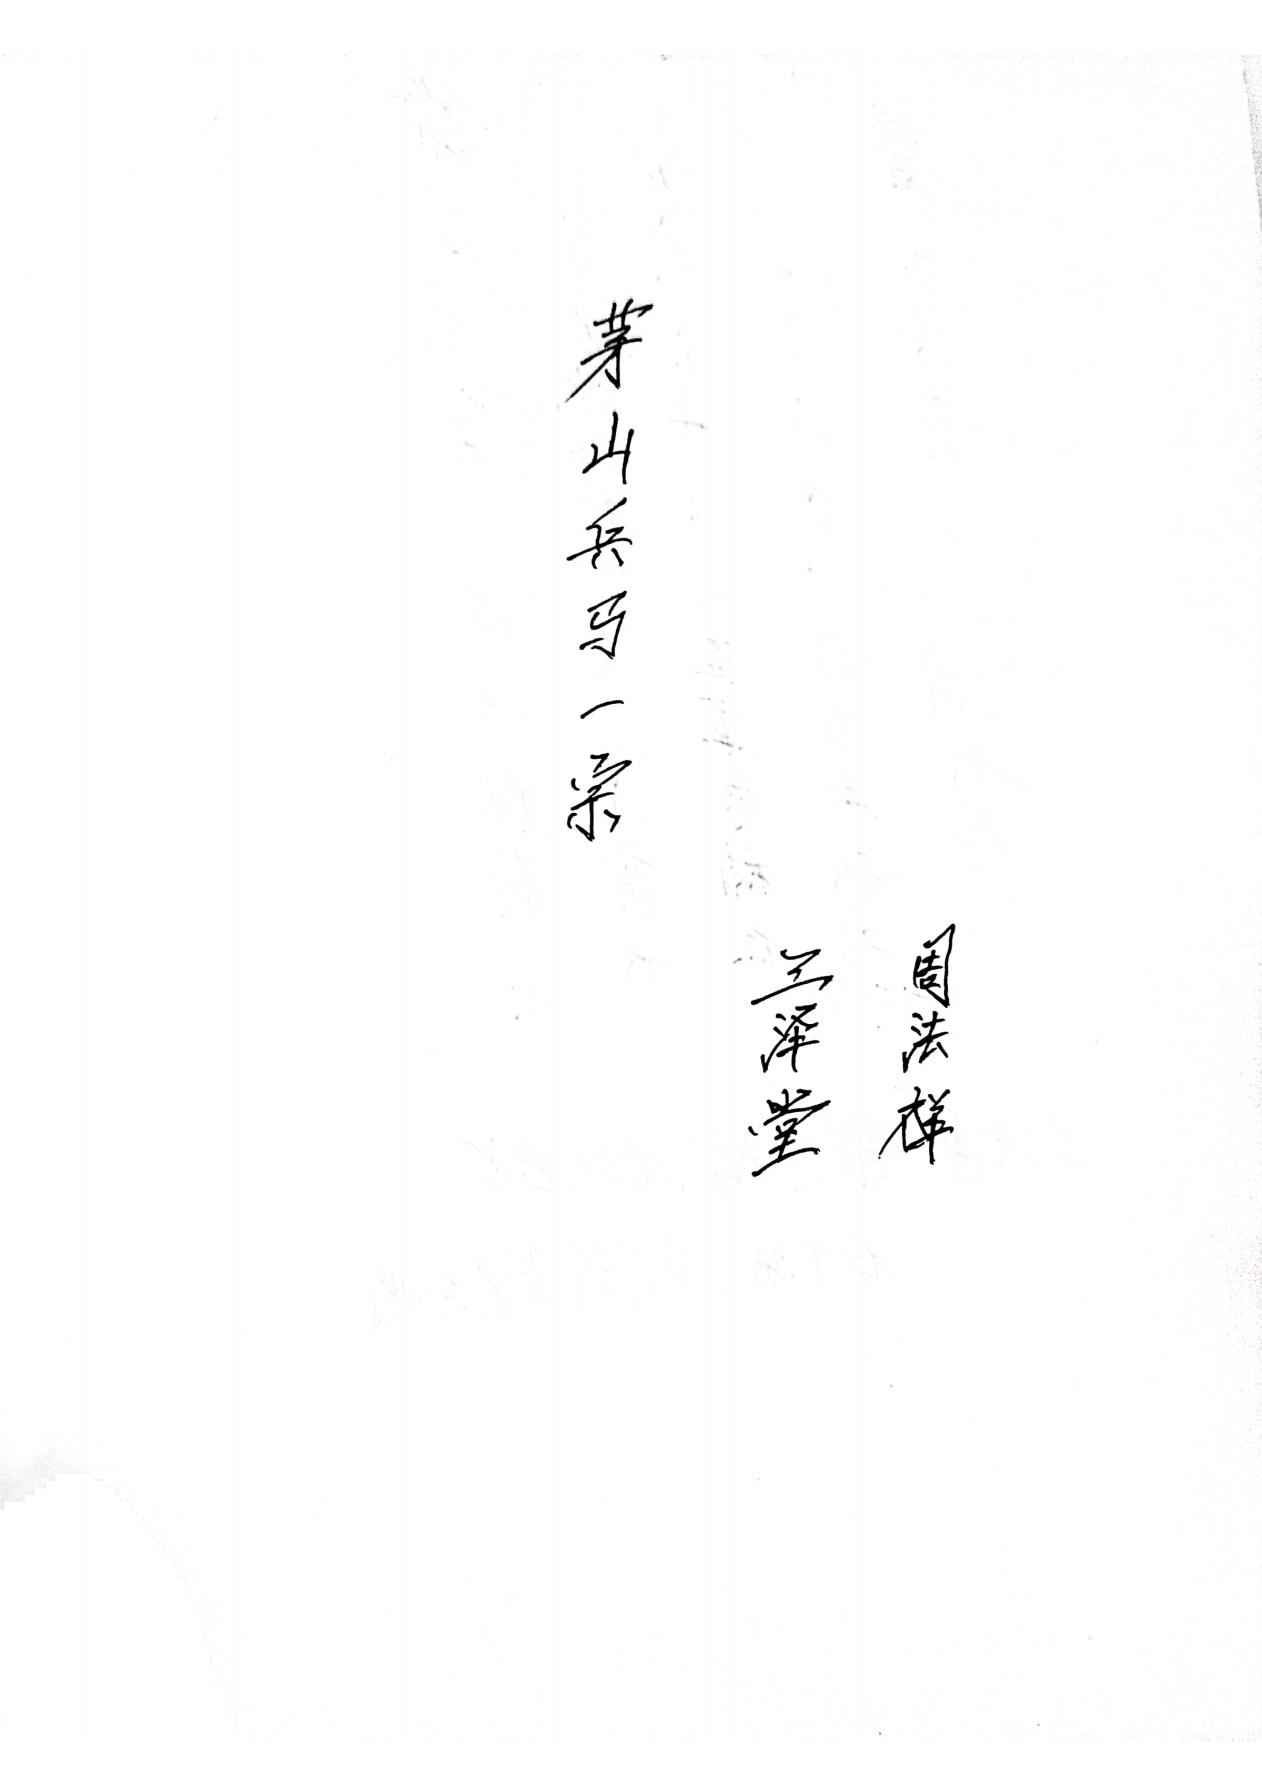 周法祥
三泽堂
茅山兵马一宗